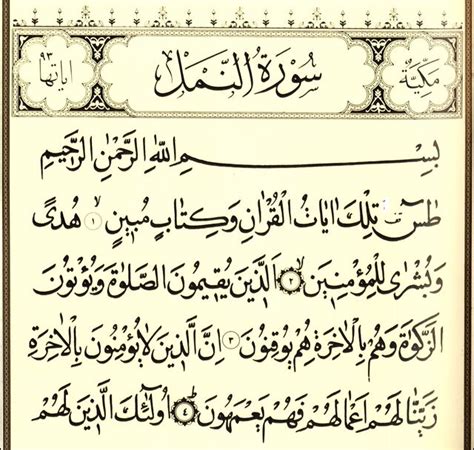 مكية
سورة النمل
اياتها ٩٣
بِسْمِ اللّٰهِ الرَّحْمٰنِ الرَّحِيمِ
طٰسٓ تِلْكَ اٰيَاتُ الْقُرْاٰنِ وَكِتَابٍ مُبِينٍ ﴿١﴾ هُدًى
وَبُشْرٰى لِلْمُؤْمِنِينَ ﴿٢﴾ اَلَّذِينَ يُقِيمُونَ الصَّلٰوةَ وَيُؤْتُونَ
الزَّكٰوةَ وَهُمْ بِالْاٰخِرَةِ هُمْ يُوقِنُونَ ﴿٣﴾ اِنَّ الَّذِينَ لَا يُؤْمِنُونَ بِالْاٰخِرَةِ
زَيَّنَّا لَهُمْ اَعْمَالَهُمْ فَهُمْ يَعْمَهُونَ ﴿٤﴾ اُولٰٓئِكَ الَّذِينَ لَهُمْ